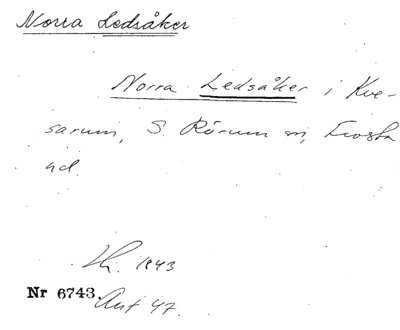 Norra Ledsåker
Norra Ledsåker i Kve-
sarum, S. Rörum sn, Frosta
hd.
Lh. 1843
Nr 6743.
Ant 47.